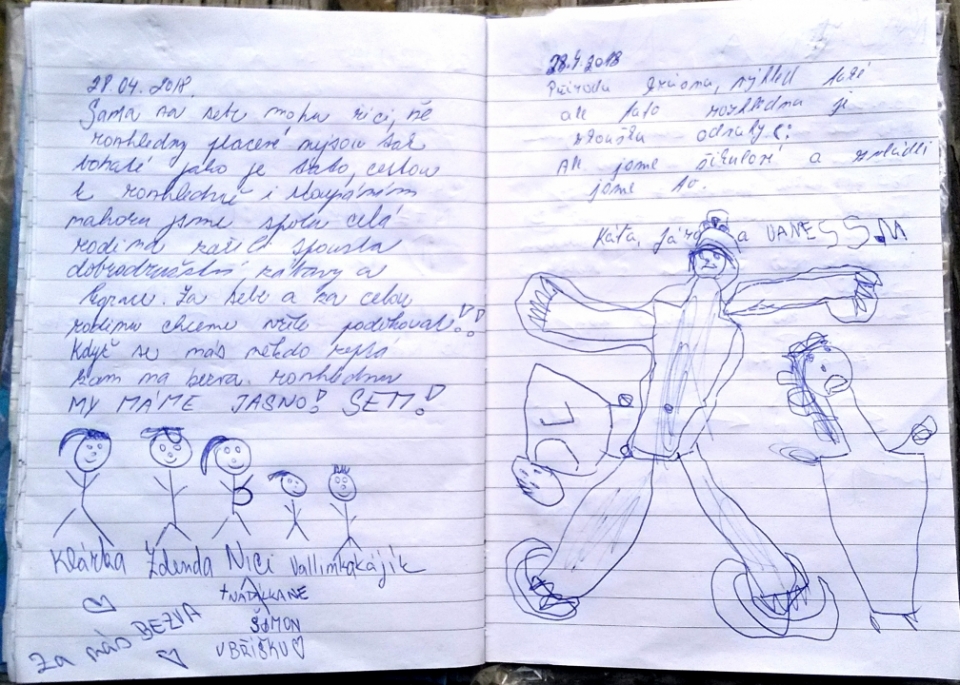 28.04.2018.
Sama na sebe mohu říci, že
rozhledny placené nejsou tak
bohaté jako je tato, cestou
k rozhledně i stoupáním
nahoru jsme spolu celá
rodina zažila spousta
dobrodružství, zábavy a
legrace. Za sebe a za celou
rodinu chceme poděkovat!!
Když se nás někdo zeptá
kam na bezva rozhlednu
MY MÁME JASNO! SEM!
Klárka Zdenda Nici
+ NÁŠ
V BŘÍŠKU
Za nás BEZVA
28.4.2018
Příroda krásná, výhled také
ale tato rozhledna je
zkouška odvahy (:
Ale jsme šikulové a zvládli
jsme to.
Káťa, Jára a VANESSM